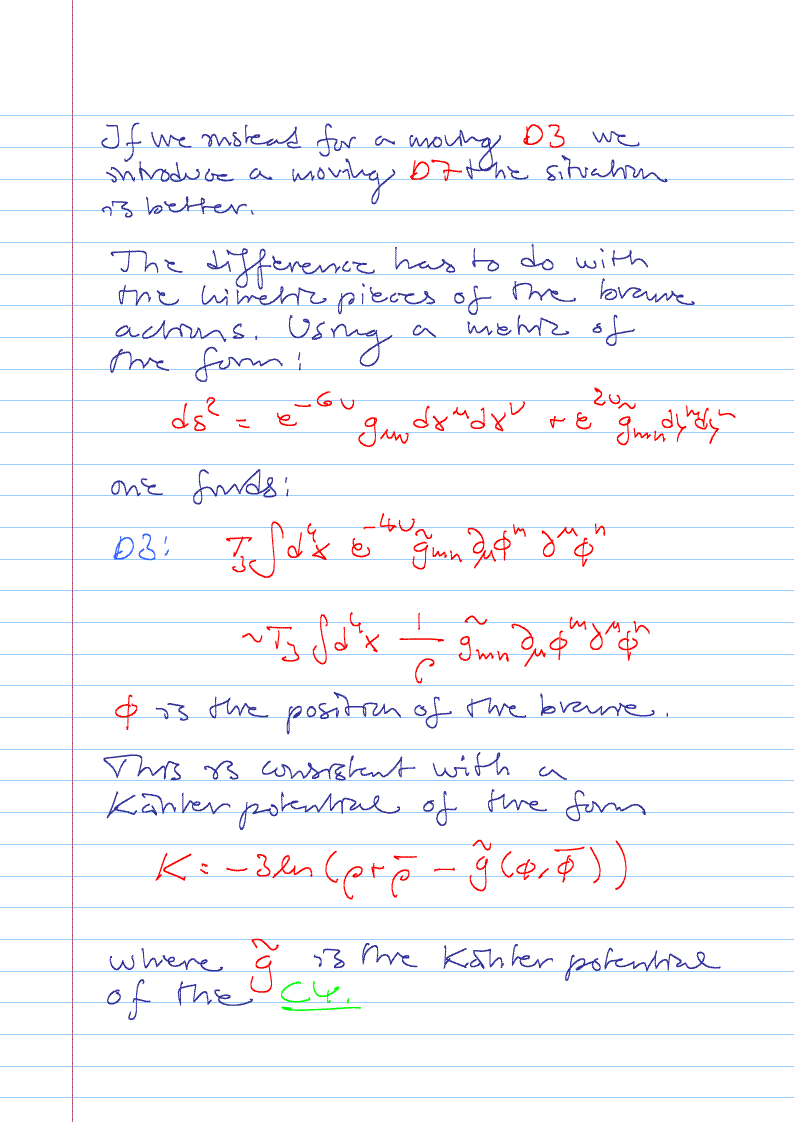 If we instead for a moving D3 we
introduce a moving D7 the situation
is better.
The difference has to do with
the kinetic pieces of the brane
actions. Using a metric of
the form:
ds² = e^{-6u} g_{μν} dx^μ dx^ν + e^{2u} g̃_{mn} dy^m dy^n
one finds:
D3: T₃ ∫d⁴x e^{-4u} g̃_{mn} ∂_μ φ^m ∂^μ φ^n
~ T₃ ∫d⁴x 1/ρ g̃_{mn} ∂_μ φ^m ∂^μ φ^n
φ is the position of the brane.
This is consistent with a
Kähler potential of the form
K = -3 ln (ρ + ρ̄ - g̃ (φ, φ̄))
where g̃ is the Kähler potential
of the CY.